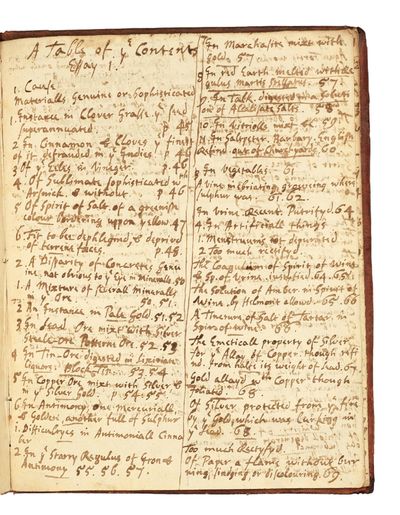 A Table of ye Contents
Essay 1.
1. Cause
Materialls Genuine or Sophisticated
1. Instance in Clover Grasse ye seed
superannuated. p 45
2 In. Cinnamon & Cloves ye finest
of it defrauded in ye Indies. p 45
3 Of ye Eeles in Vineger. p. 46
4. Of Sublimate sophisticated wth
Arsnick, & without p. 46
5 Of Spirit of Salt of a greenish
colour bordering upon yellow. 47
6. Fit to be dephlegmed & deprived
of terrene faces. p. 48.
2 A Disparity of Concretes Genu-
ine, not obvious to ye Eye in Mineralls 50
1. A Mixture of severall Mineralls
in ye Ore 50. 51.
2 An Instance in Pale Gold. 51. 52
3 In Lead Ore mixt with Silver
Ore Potterne Ore. 52. 53
4 In Tin-Ore digested in
Liquors: 53. 54
5 In Copper Ore mixt with Silver &
in ye Silver Gold. p. 54. 55
6 In Antimony, one mercuriall,
& Golden, another full of Sulphur
1. Difficultyes in Antimoniall Cinna-
ber
2 In ye Starry Regulus of Iron &
Antimony 55. 56. 57.
7. In Marchasite mixt with
gold. 57
8 In red Earth melted with Re-
gulus Martis Stellatus. 57.
9. In Talk, digested
of Alcalizate Salts. 58
10. In Vitriole mixt 59
11. In Saltpeter, Barbary, English
Refin'd out of Churchyards. 60
3. In Vegetables. 61
A Vine inebriating, groweing where
Sulphur was. 61. 62.
In Urine. Recent. Putrifyd. 64
4. In Artificiall things
1. Menstruums not depurated
2 Too much rectified
The Coagulum of Spirit of Wine
& Sp. of Urine. 64. 65
the Solution of Amber in Spirit of
Wine, by Helmont allowd. 65. 66
A Tincture of Salt of Tartar. in
Spir. of wine 66
The Emeticall property of Silver
for ye Allay of Copper. though refi-
nd. from halfe its weight of Lead. 67
Gold allayd wth Copper though
foliated. 68.
Of Silver protected from
ye Gold, which was Lurking in
ye Lead. 68
Too much Rectifyd.
Of Paper a flame without bur-
ning, singing or discolouring. 69